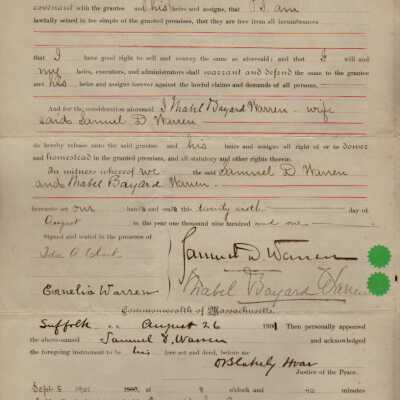 covenant with the grantee and his heirs and assigns, that I am
lawfully seized in fee simple of the granted premises, that they are free from all incumbrances
that I have good right to sell and convey the same as aforesaid; and that I will and
my heirs, executors, and administrators shall warrant and defend the same to the grantee
and his heirs and assigns forever against the lawful claims and demands of all persons.
And for the consideration aforesaid I Mabel Bayard Warren wife
said Samuel D Warren
do hereby release unto the said grantee and his heirs and assigns all right of or to dower
and homestead in the granted premises, and all statutory and other rights therein.
In witness whereof we the said Samuel D. Warren
and Mabel Bayard Warren
hereunto set our hands and seals this twenty sixth day of
August in the year one thousand nine hundred and one
Signed and sealed in the presence of
Samuel D. Warren
Cornelia Warren
Mabel Bayard Warren
Commonwealth of Massachusetts
Suffolk ss. August 26 1901 Then personally appeared
the above-named Samuel D. Warren and acknowledged
the foregoing instrument to be his free act and deed, before me
Blakely Hoar
Justice of the Peace.
Sept. 5 1901 at 9 o'clock and minutes